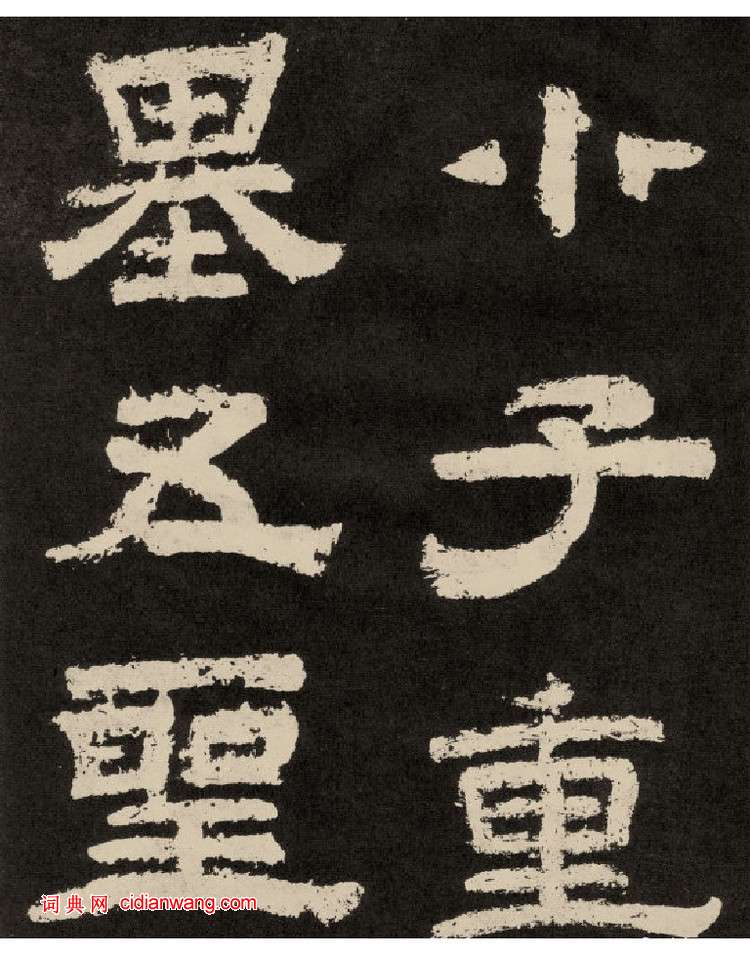 小子重
基五聖
词典网 cidianwang.com